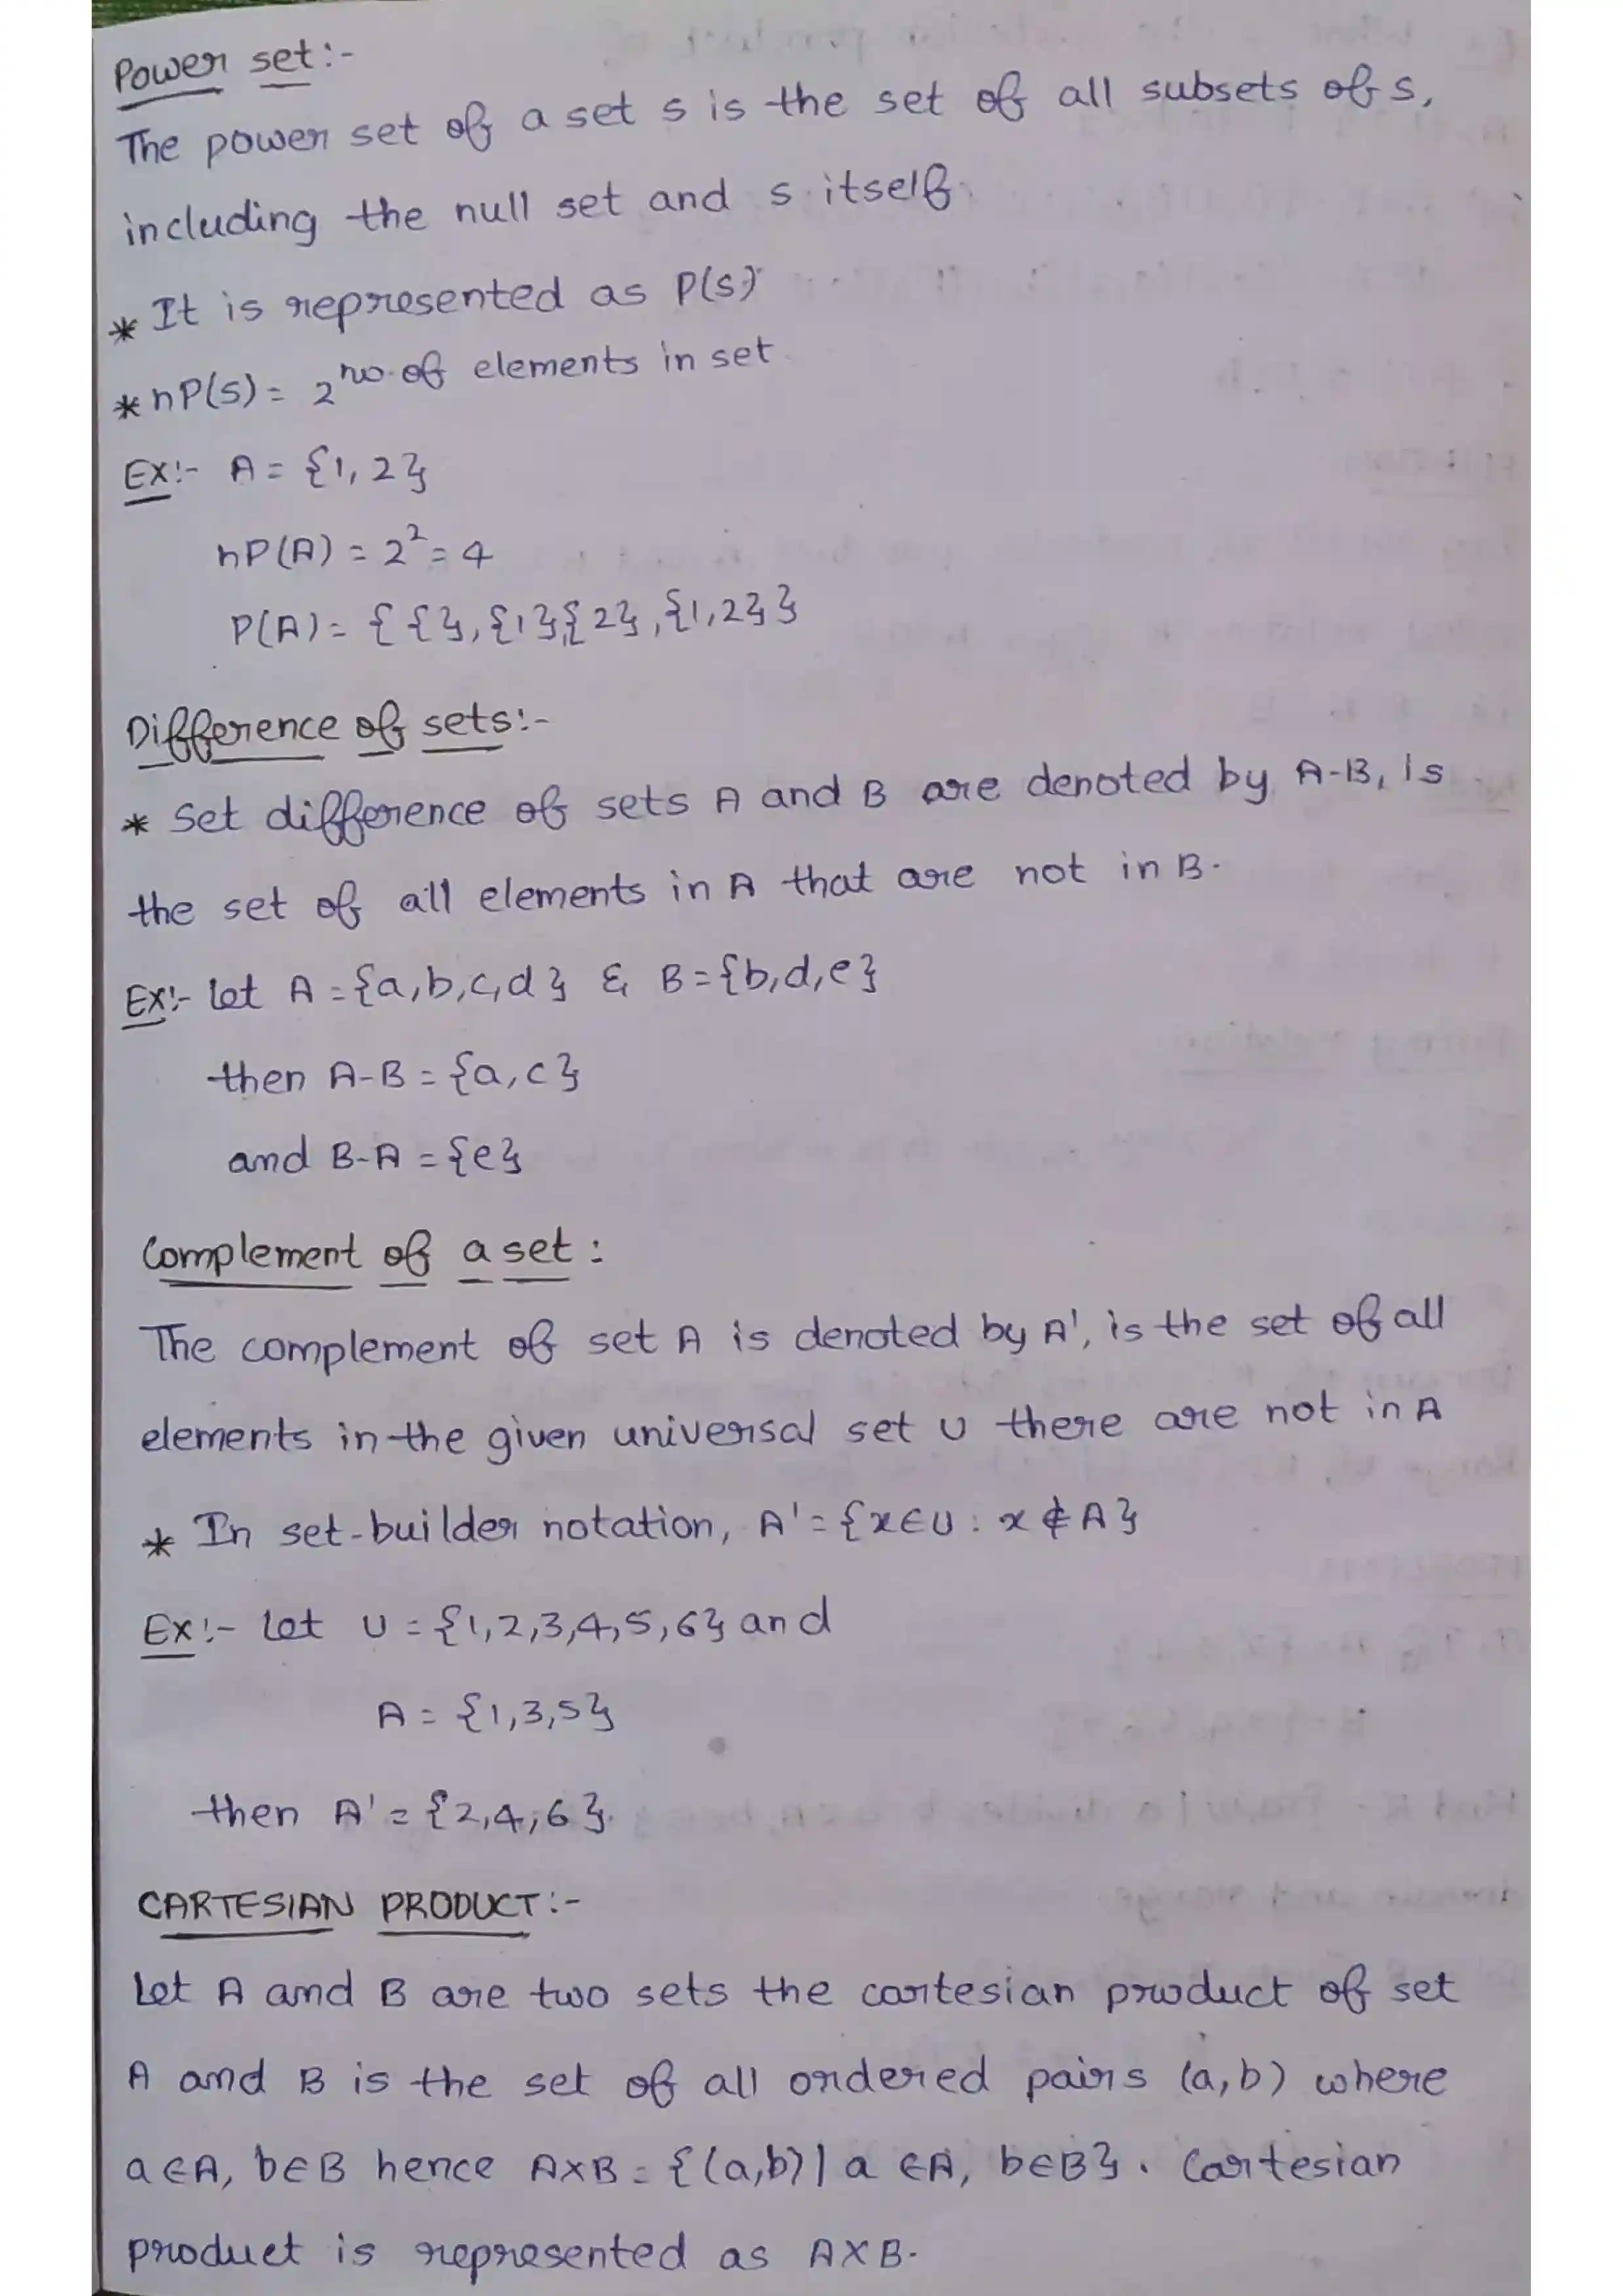 Power set:-
The power set of a set s is the set of all subsets of s,
including the null set and s itself.
* It is represented as P(s).
* nP(s) = 2^no. of elements in set
Ex:- A = {1, 2}
nP(A) = 2² = 4
P(A) = { { }, {1}{2}, {1,2} }
Difference of sets:-
* Set difference of sets A and B are denoted by A-B, is
the set of all elements in A that are not in B.
Ex:- let A = {a,b,c,d} & B = {b,d,e}
then A-B = {a,c}
and B-A = {e}
Complement of a set :
The complement of set A is denoted by A', is the set of all
elements in the given universal set U there are not in A
* In set-builder notation, A' = {x∈U : x ∉ A}
Ex:- let U = {1,2,3,4,5,6} and
A = {1,3,5}
then A' = {2,4,6}.
CARTESIAN PRODUCT:-
Let A and B are two sets the cartesian product of set
A and B is the set of all ordered pairs (a,b) where
a∈A, b∈B hence A×B = {(a,b) | a ∈A, b∈B}. Cartesian
product is represented as A×B.